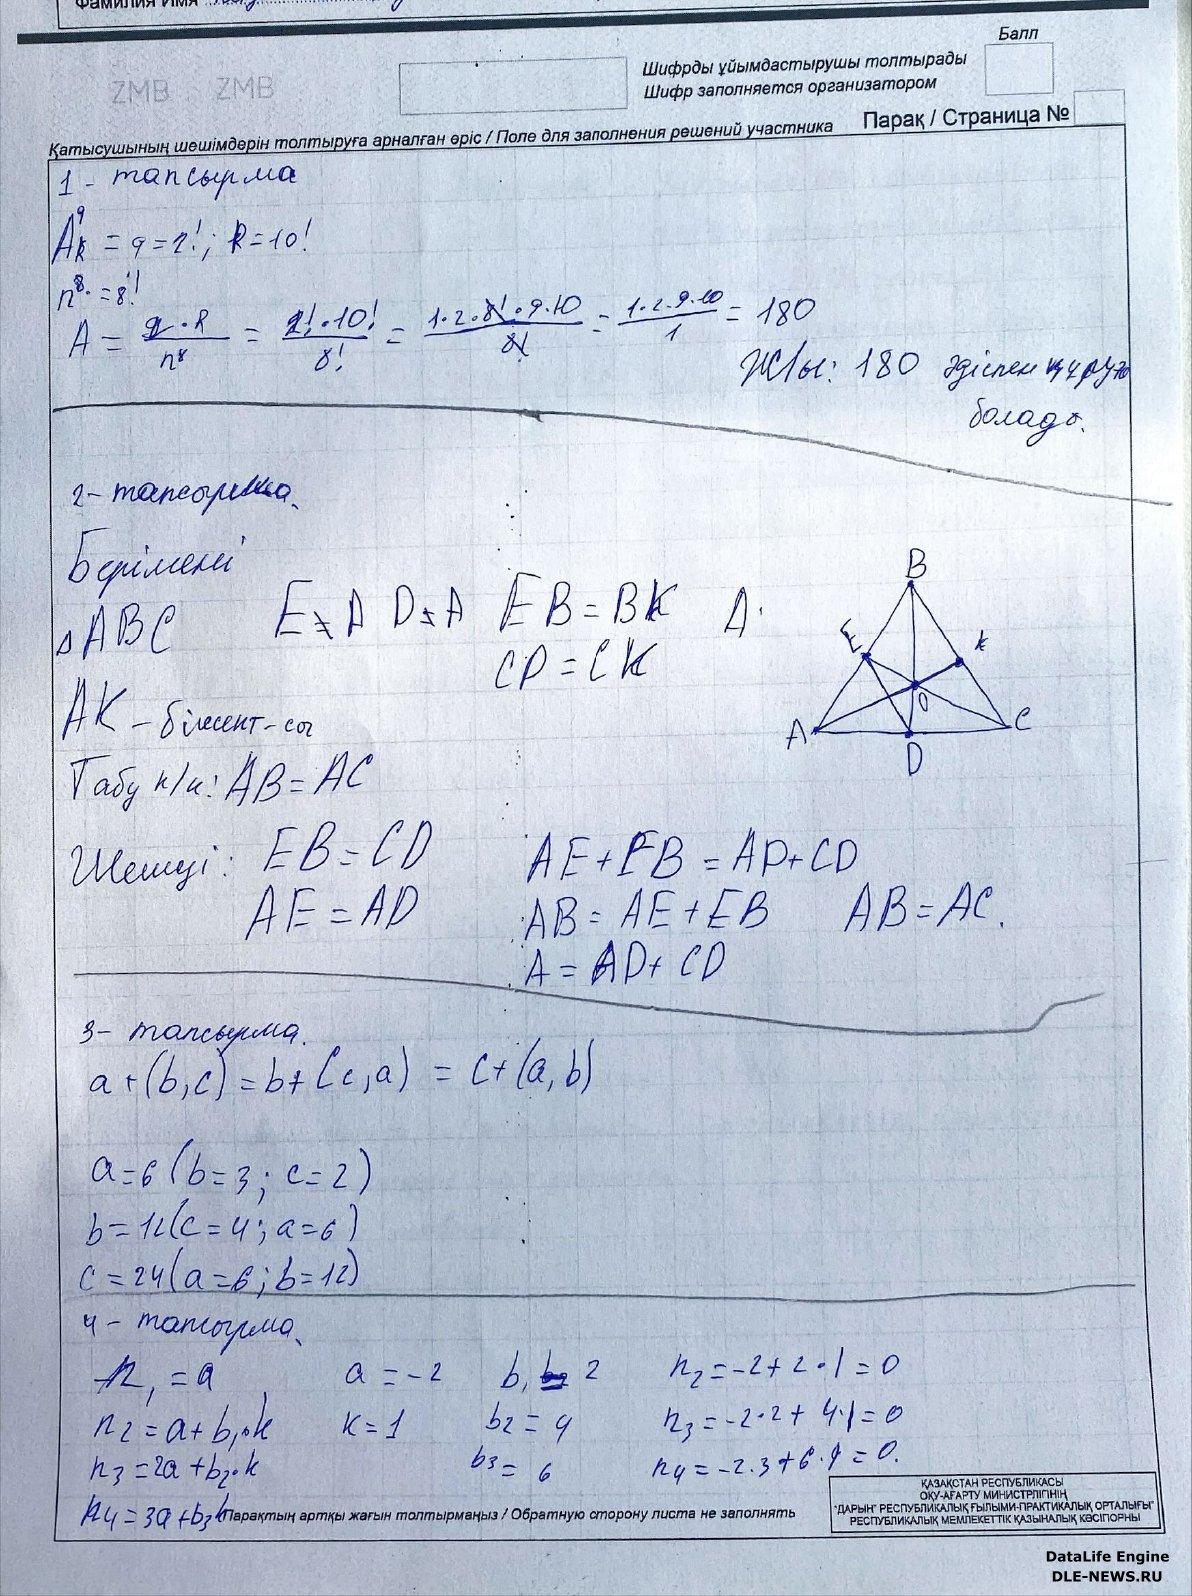 Фамилия Имя
Балл
ZMB ZMB
Шифрды ұйымдастырушы толтырады
Шифр заполняется организатором
Парақ / Страница №
Қатысушының шешімдерін толтыруға арналған өріс / Поле для заполнения решений участника
1 - тапсырма
= 9 = 2! ; R = 10!
n⁸ = 8!
A = 2 · R / n⁸ = 2! · 10! / 8! = 1·2·8!·9·10 / 8! = 1·2·9·10 / 1 = 180
Ж/ы: 180 әдіспен
болады.
2 - тапсырма.
Берілгені
∆ABC E A D A EB = BK A
CD = CK
AK - -сы
Табу к/к: AB = AC
B
E K
O
A D C
Шешуі: EB = CD AE + EB = AD + CD
AE = AD AB = AE + EB AB = AC.
A = AD + CD
3 - тапсырма.
a + (b, c) = b + (c, a) = c + (a, b)
a = 6 (b = 3; c = 2)
b = 12 (c = 4; a = 6)
c = 24 (a = 6; b = 12)
4 - тапсырма.
n₁ = a a = -2 b₁ 2 n₂ = -2 + 2·1 = 0
n₂ = a + b₁·k k = 1 b₂ = 4 n₃ = -2·2 + 4·1 = 0
n₃ = 2a + b₂·k b₃ = 6 n₄ = -2·3 + 6·1 = 0.
n₄ = 3a + b₃k
Парақтың артқы жағын толтырмаңыз / Обратную сторону листа не заполнять
ҚАЗАҚСТАН РЕСПУБЛИКАСЫ
ОҚУ-АҒАРТУ МИНИСТРЛІГІНІҢ
"ДАРЫН" РЕСПУБЛИКАЛЫҚ ҒЫЛЫМИ-ПРАКТИКАЛЫҚ ОРТАЛЫҒЫ"
РЕСПУБЛИКАЛЫҚ МЕМЛЕКЕТТІК ҚАЗЫНАЛЫҚ КӘСІПОРНЫ
DataLife Engine
DLE-NEWS.RU